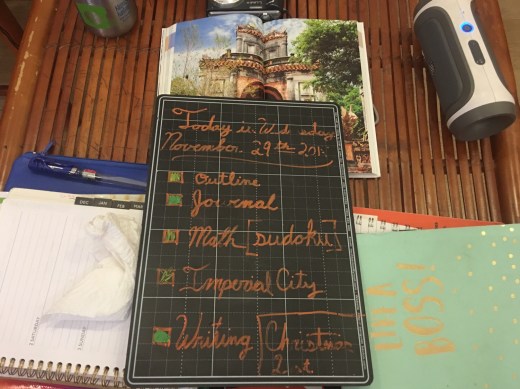 Today is Wednesday
November 29th
Outline
Journal
Math [sudoku]
Imperial City
Writing [Christmas
DEC JAN FEB
SATURDAY
SUNDAY
I'M A
BOSS